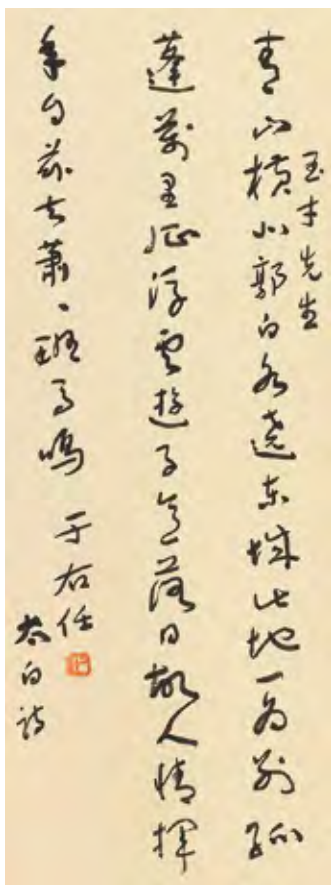 青山橫北郭白水遶東城此地一為別孤
先生
蓬萬里征浮雲遊子意落日故人情揮
手自茲去蕭〻班馬鳴
于右任
太白詩